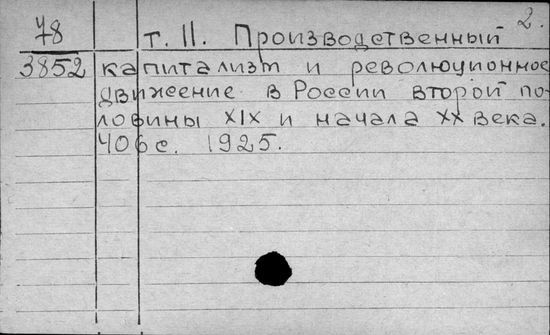 2.
78 т. II. Производственный
3852 капитализм и революционное
движение в России второй по-
ловины XIX и начала XX века.
406 с. 1925.